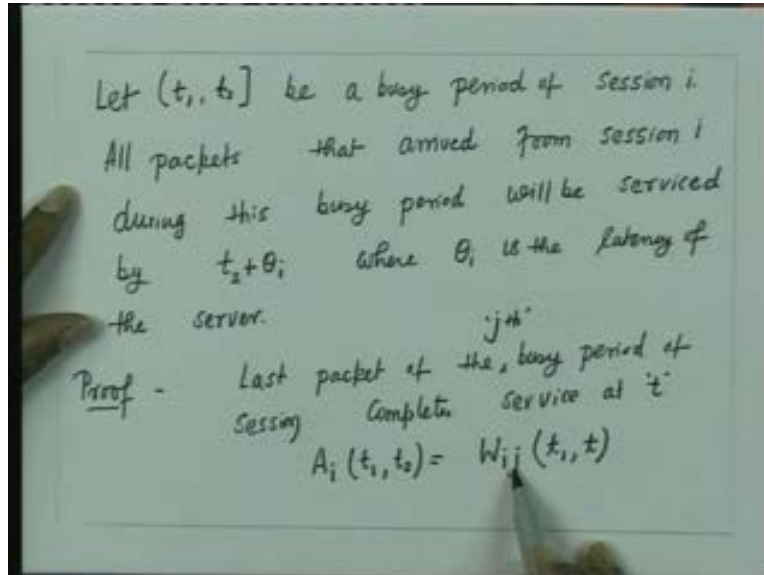 Let (t₁, t₂] be a busy period of session i.
All packets that arrived from session i
during this busy period will be serviced
by t₂+θᵢ where θᵢ is the latency of
the server.
Proof - Last packet of the 'jth' busy period of
Session Completes service at 't'
Aᵢ (t₁, t₂) = Wᵢⱼ (t₁, t)